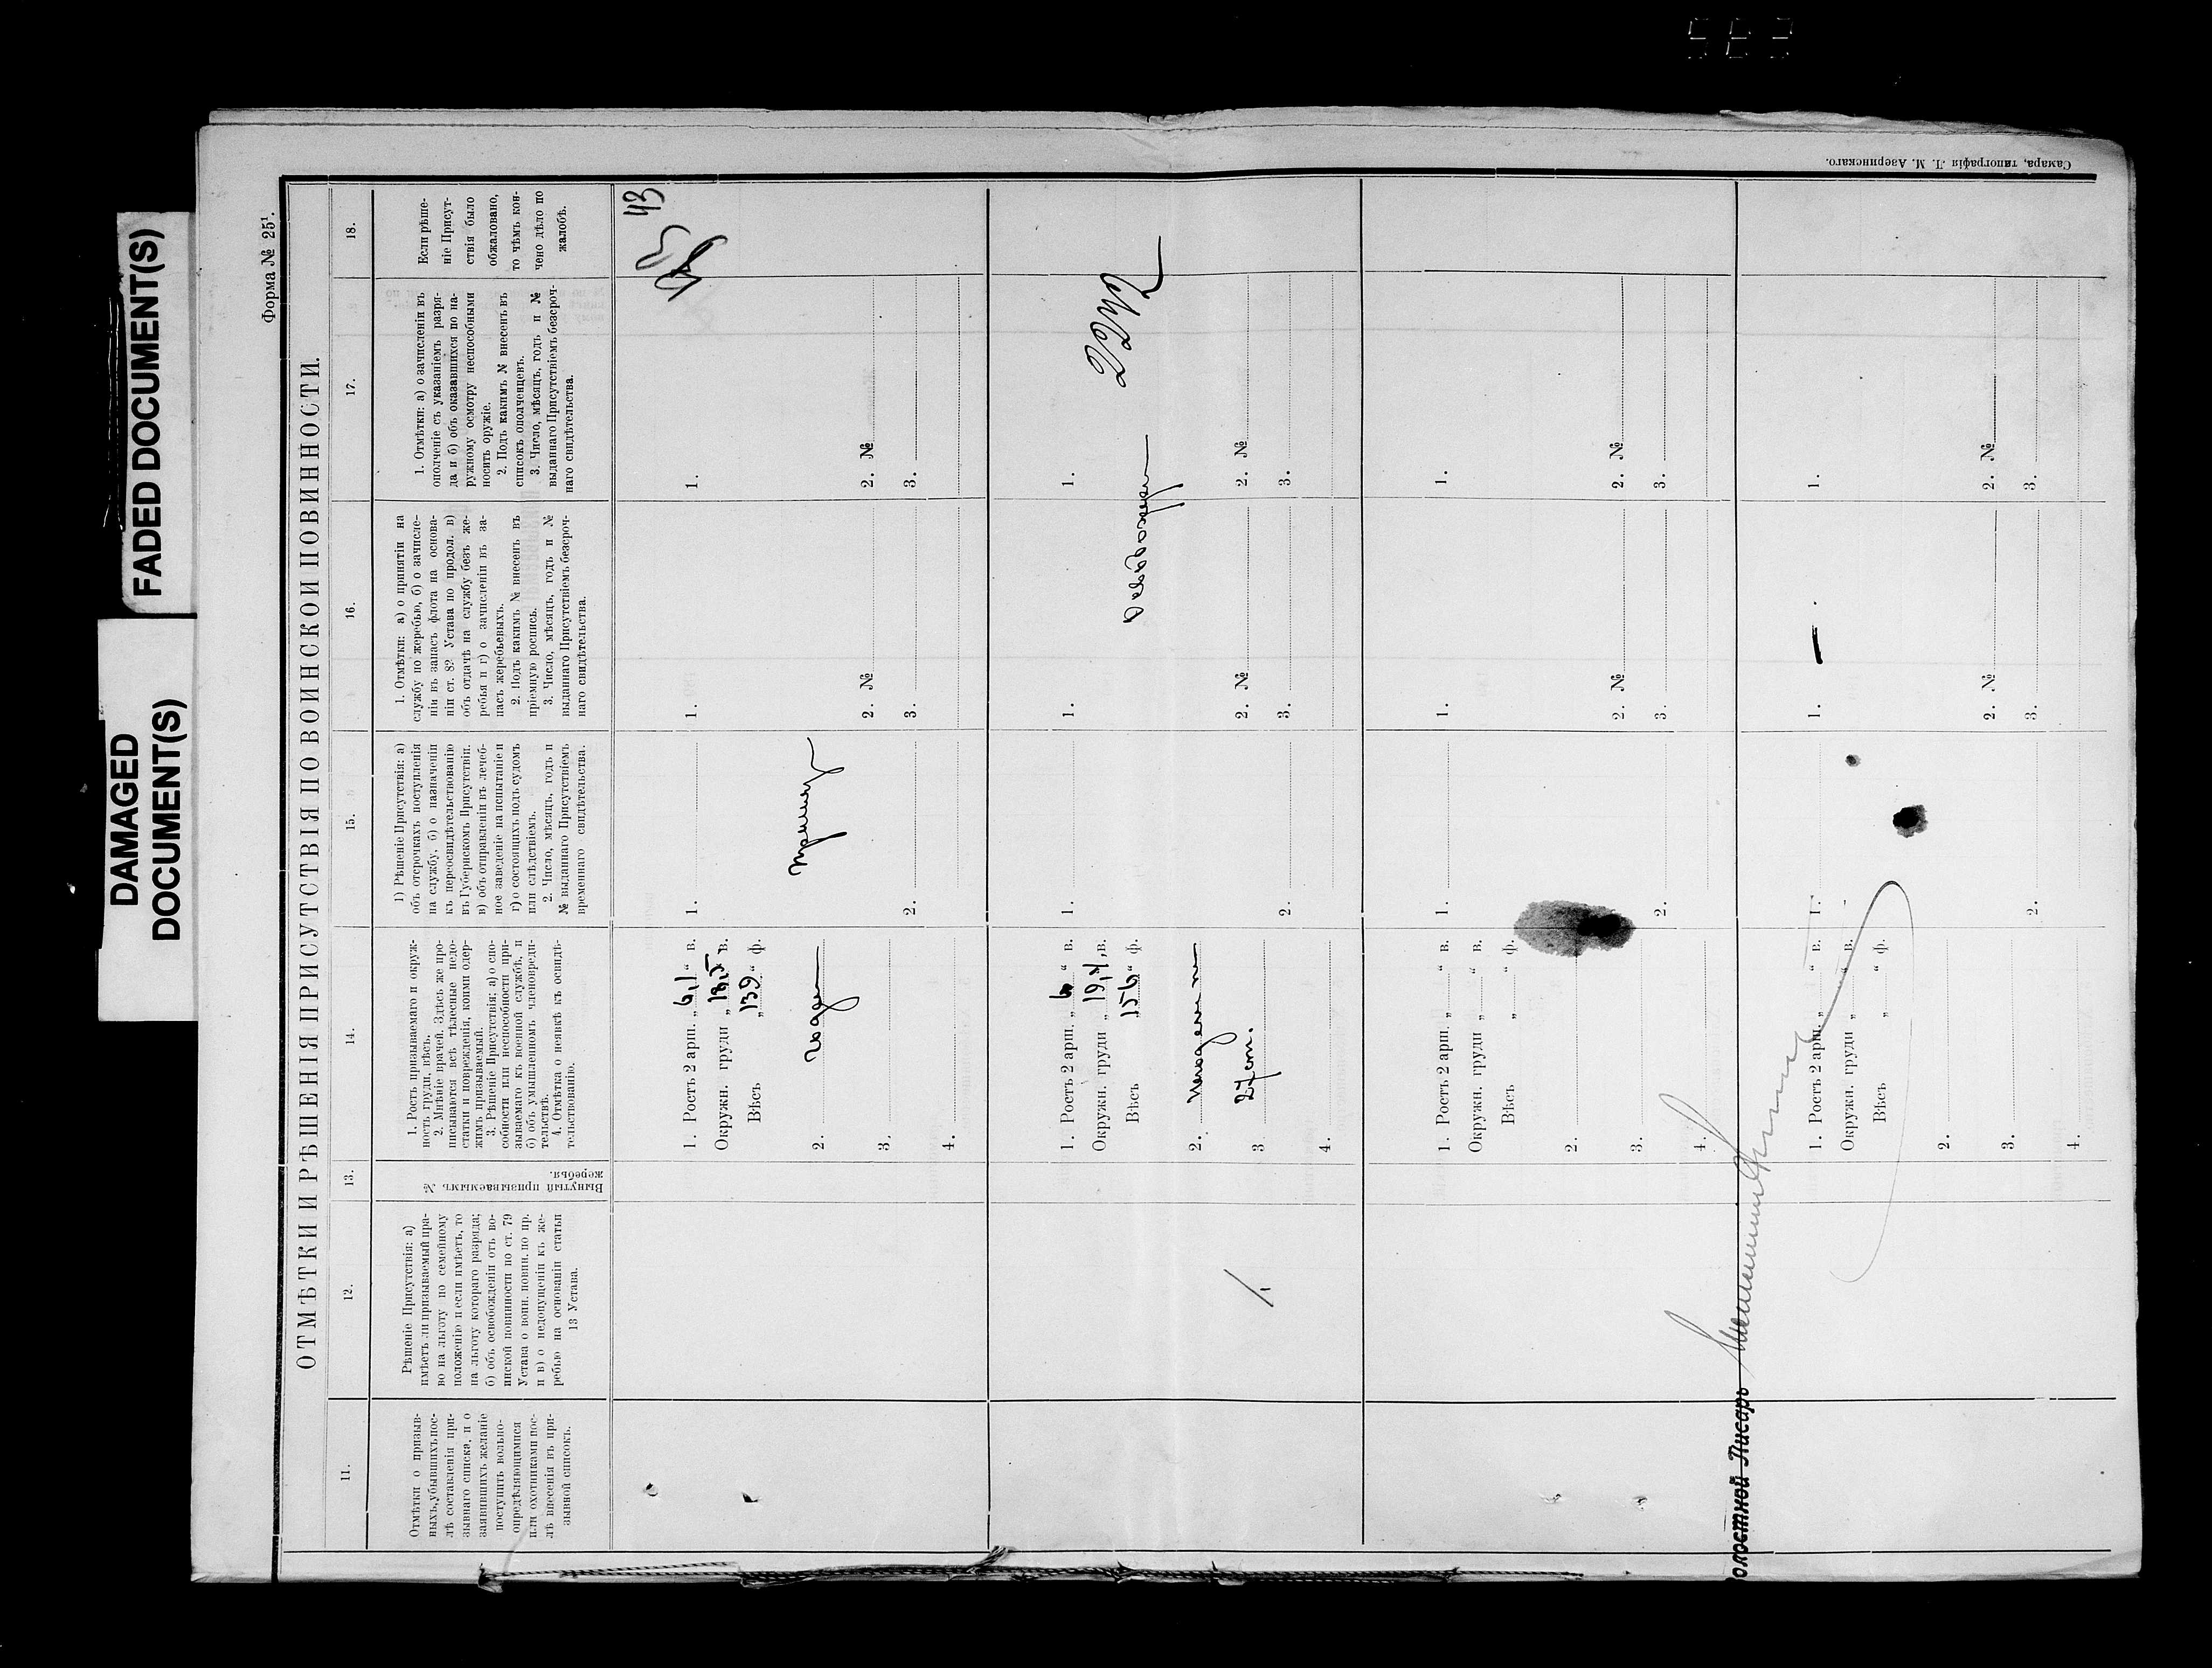 FADED DOCUMENT(S)
DAMAGED
DOCUMENT(S)
Форма № 25¹.
ОТМѢТКИ И РѢШЕНІЯ ПРИСУТСТВІЯ ПО ВОИНСКОЙ ПОВИННОСТИ.
11.
12.
13.
14.
15.
16.
17.
18.
Отмѣтки о призыв-
ныхъ, убывшихъ пос-
лѣ составленія при-
зывнаго списка, и о
заявившихъ желаніе
поступить вольно-
опредѣляющимися
или охотниками пос-
лѣ внесенія въ при-
зывной списокъ.
Рѣшеніе Присутствія: а)
имѣетъ ли призываемый пра-
во на льготу по семейному
положенію и если имѣетъ, то
на льготу котораго разряда;
б) объ освобожденіи отъ во-
инской повинности по ст. 79
Устава о воин. повин. по пр.
и в) о недопущеніи къ же-
ребью на основаніи статьи
13 Устава.
Вынутый призываемымъ №
жеребья.
1. Ростъ призываемаго и окруж-
ность груди, вѣсъ.
2. Мнѣніе врачей. Здѣсь же про-
писываются всѣ тѣлесные недо-
статки и поврежденія, коими одер-
жимъ призываемый.
3. Рѣшеніе Присутствія: а) о спо-
собности или неспособности при-
зываемаго къ военной службѣ, и
б) объ умышленномъ членовреди-
тельствѣ.
4. Отмѣтка о неявкѣ къ освидѣ-
тельствованію.
1) Рѣшеніе Присутствія: а)
объ отсрочкахъ поступленія
на службу, б) о назначеніи
къ переосвидѣтельствованію
въ Губернскомъ Присутствіи.
в) объ отправленіи въ лечеб-
ное заведеніе на испытаніе и
г) о состоящихъ подъ судомъ
или слѣдствіемъ.
2. Число, мѣсяцъ, годъ и
№ выданнаго Присутствіемъ
временнаго свидѣтельства.
1. Отмѣтки: а) о принятіи на
службу по жеребью, б) о зачисле-
ніи въ запасъ флота на основа-
ніи ст. 82 Устава по продол. в)
объ отдачѣ на службу безъ же-
ребья и г) о зачисленіи въ за-
пасъ жеребьевыхъ.
2. Подъ какимъ № внесенъ въ
пріемную роспись.
3. Число, мѣсяцъ, годъ и №
выданнаго Присутствіемъ безсроч-
наго свидѣтельства.
1. Отмѣтки: а) о зачисленіи въ
ополченіе съ указаніемъ разря-
да и б) объ оказавшихся по на-
ружному осмотру неспособными
носить оружіе.
2. Подъ какимъ № внесенъ въ
списокъ ополченцевъ.
3. Число, мѣсяцъ, годъ и №
выданнаго Присутствіемъ безсроч-
наго свидѣтельства.
Если рѣше-
ніе Присут-
ствія было
обжаловано,
то чѣмъ кон-
чено дѣло по
жалобѣ.
43
1. Ростъ 2 арш. „ 6,1 “ в.
Окружн. груди „ 18,5 “ в.
Вѣсъ „ 139 “ ф.
2. годен
3.
4.
1.
Принят
2.
1.
2. №
3.
1.
2. №
3.
1. Ростъ 2 арш. „ 6 “ в.
Окружн. груди „ 19,4 “ в.
Вѣсъ „ 156 “ ф.
2.
3
27 ст.
4.
1.
2.
1.
Освобожден
2. №
3.
1.
2. №
3.
1. Ростъ 2 арш. „ “ в.
Окружн. груди „ “ в.
Вѣсъ „ “ ф.
2.
3.
4.
1.
2.
1.
2. №
3.
1.
2. №
3.
Волостной Писарь
1. Ростъ 2 арш. „ “ в.
Окружн. груди „ “ в.
Вѣсъ „ “ ф.
2.
3.
4.
1.
2.
1.
2. №
3.
1.
2. №
3.
Самара, типографія Л. М. Азеринскаго.